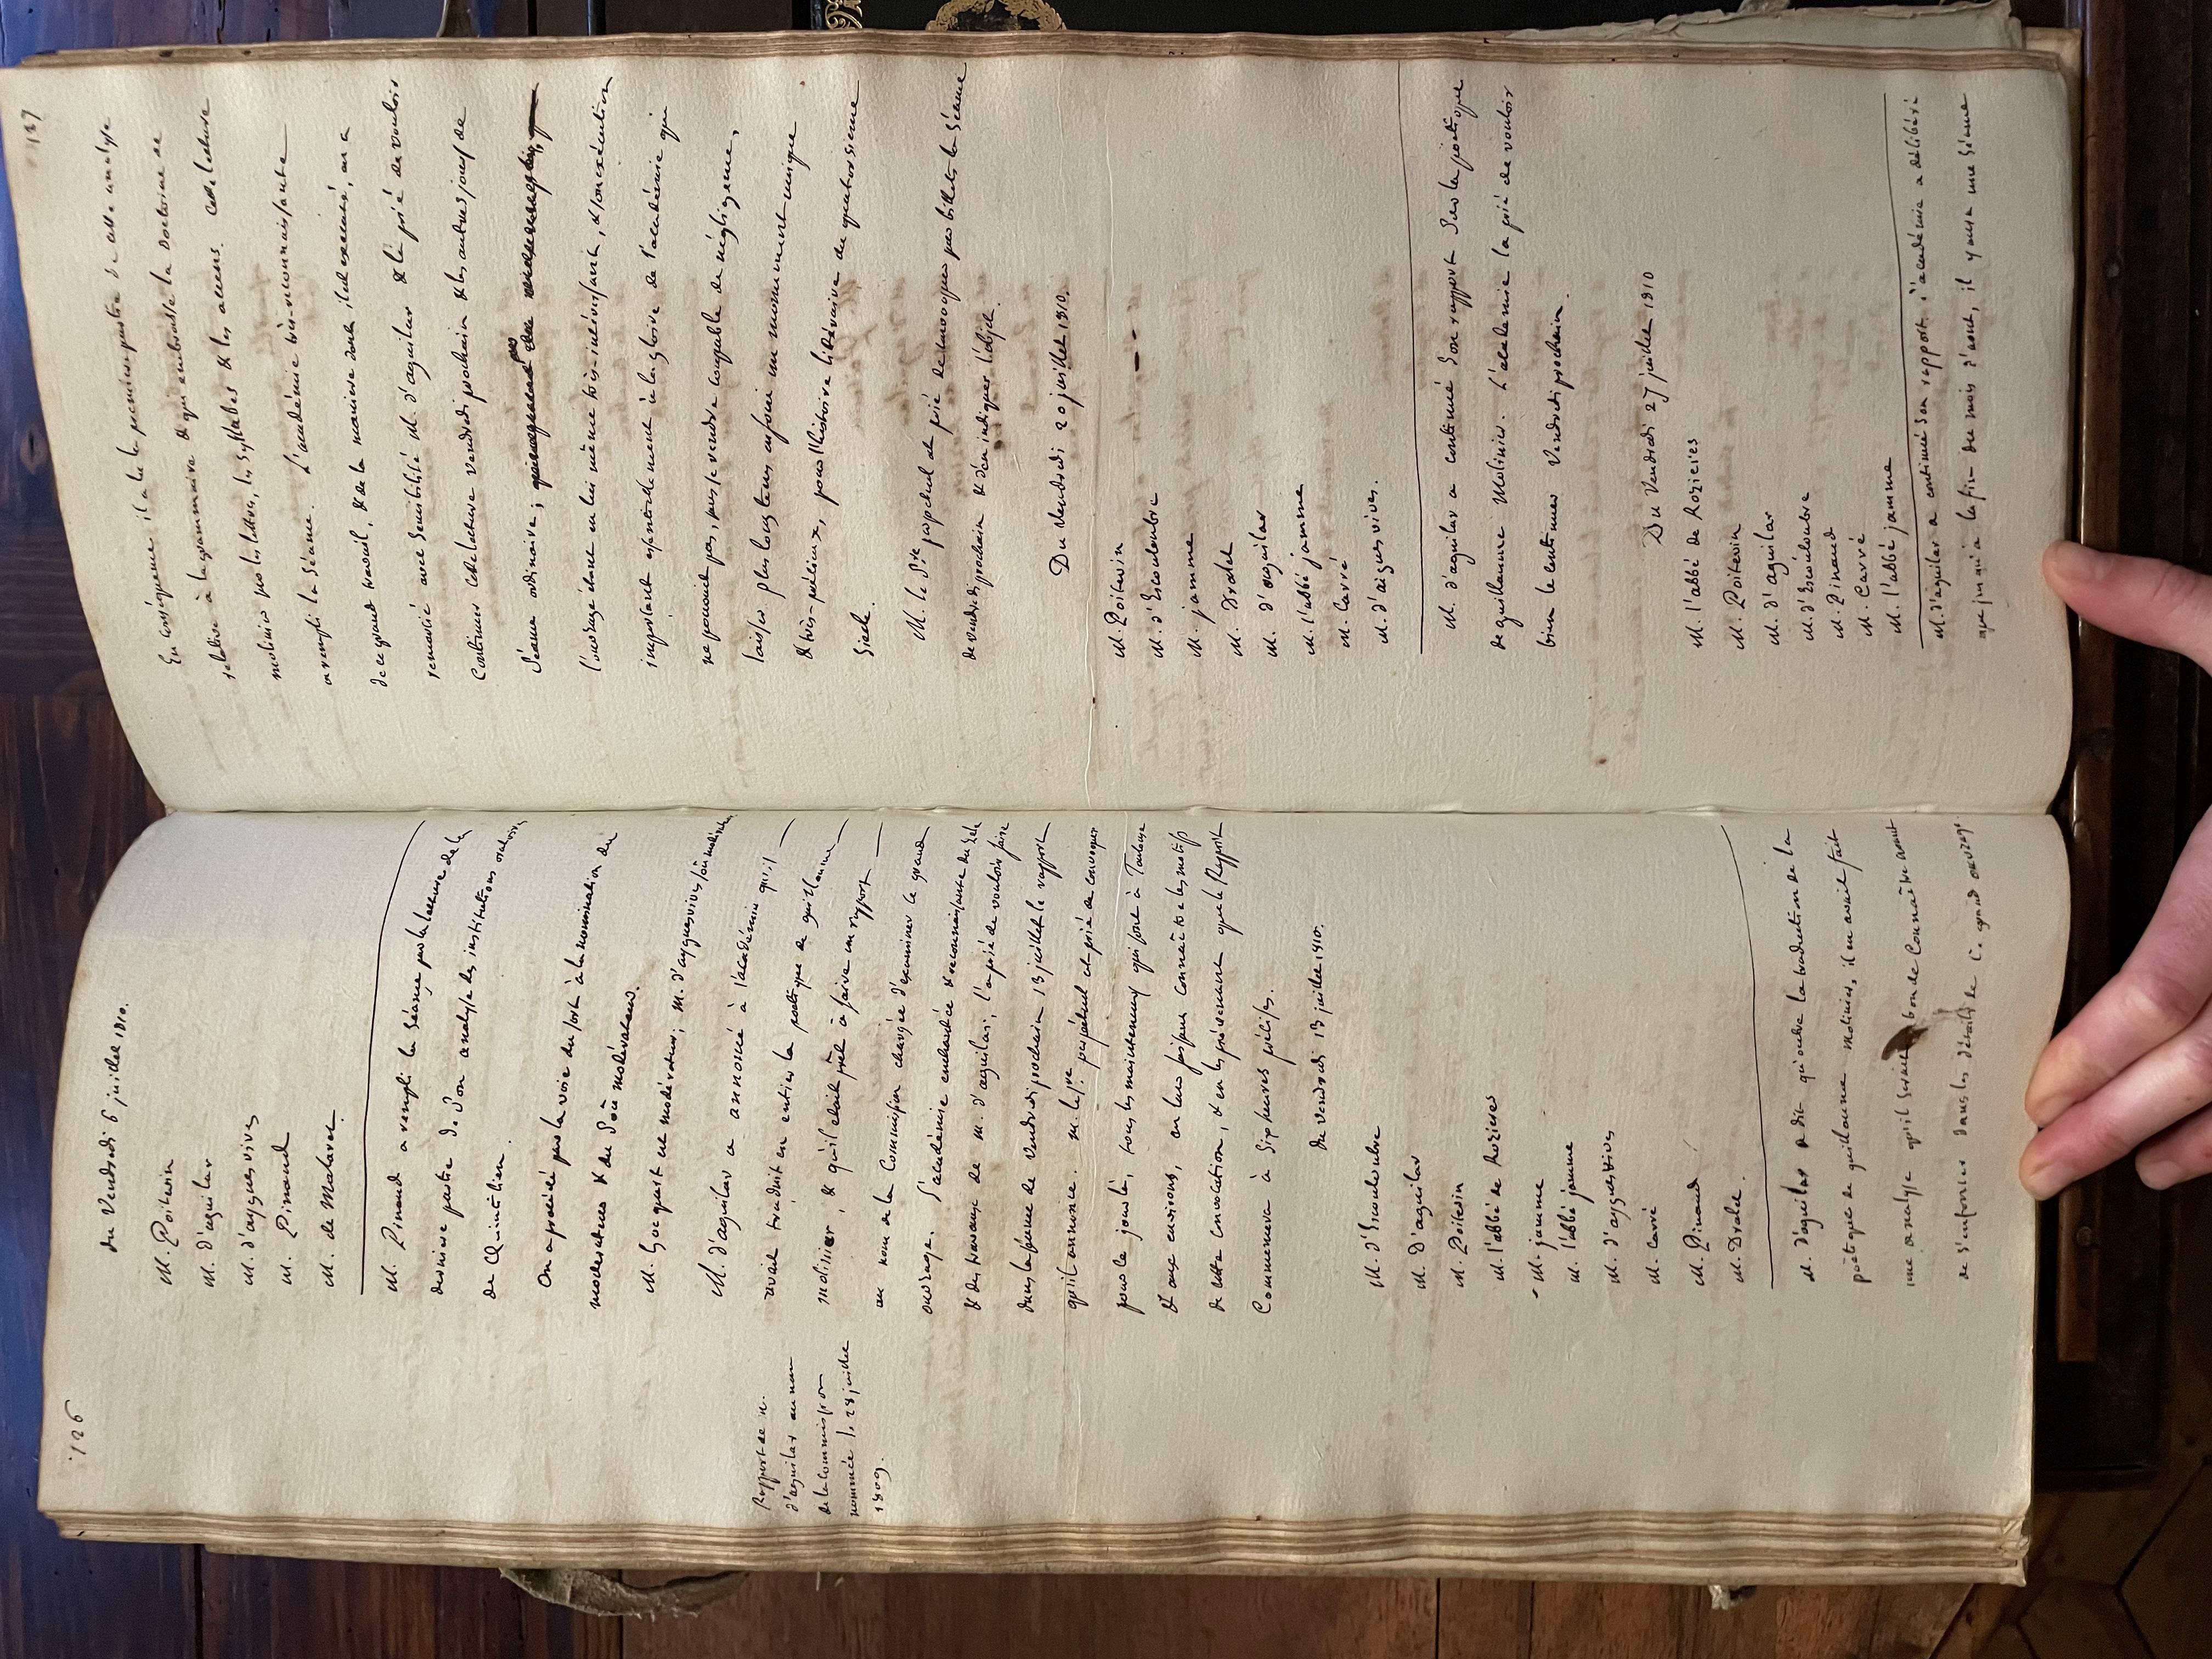 126
du Vendredi 6 juillet 1810.
M. Poitevin
M. d'aguilar
M. d'ayguesvives
M. Pinaud
M. de Malaret.
M. Pinaud a rempli la Séance par la lecture de la
derniere partie de Son analyse des institutions
de Quintilien.
On a procédé par la voie du sort à la nomination du
moderateur & du Sou modérateur.
M. Gouquart est modérateur; M. d'ayguesvives sou modérateur
M. d'aguilar a annoncé à l'académie qu'il
avait traduit en entier la poétique de guillaume
molinier, & qu'il était prêt à faire un rapport
Rapport de M.
d'aguilar au nom
de la commission
nommée le 28 juillet
1809.
au nom de la Commission chargée d'examiner ce grand
ouvrage. L'académie enchantée & reconnaissante du zele
& des travaux de M. d'aguilar, l'a prié de vouloir faire
dans la séance de Vendredi prochain 13 juillet le rapport
qu'il annonce. M. le Sre. perpétuel est prié de convoquer
pour le jour là, tous les mainteneurs qui sont à Toulouse
& aux environs, en leur faisant connaître les motifs
de cette convocation, & en les prévenant que le Rapport
Commencera à Six heures précises.
Du vendredi 13 juillet 1810.
M. d'Escouloubre
M. D'aguilar
M. Poitevin
M. l'abbé de Rozieres
M. jamme
M. l'abbé jamme
M. d'ayguesvives
M. Carré
M. Pinaud
M. Dralet.
M. d'aguilar a dit qu'outre la traduction de la
poëtique de guillaume molinier, il en avait fait
une analyse qu'il serait bon de Connaître avant
de S'enfoncer dans les détails de ce grand ouvrage.
127
En conséquence il a lu la premiere partie de cette analyse
relative à la grammaire & qui embrasse la Doctrine de
molinier sur les lettres, les Syllabes & les accens. Cette lecture
a rempli la Séance. L'académie très-reconnaissante
de ce grand travail, & de la maniere dont il est executé, en a
remercié avec Sensibilité M. d'aguilar & l'a prié de vouloir
Continuer cette lecture Vendredi prochain & les autres jours de
Séance ordinaire;
l'ouvrage étant en lui même très-intéressant, & son exécution
important essentiellement à la gloire de l'académie qui
ne pouvait pas, sans se rendre coupable de négligence,
laisser plus longtems enfoui un monument unique
& très-précieux, pour l'histoire littéraire du quatorzieme
Siecle.
M. le Sre perpétuel est prié de convoquer par billets la Séance
de vendredi prochain & d'en indiquer l'objet.
Du Vendredi 20 juillet 1810.
M. Poitevin
M. d'Escouloubre
M. jamme
M. Dralet
M. d'aguilar
M. l'abbé jamme
M. Carré
M. d'aiguesvives.
M. d'aguilar a continué Son rapport Sur la poëtique
de guillaume Molinier. L'académie l'a prié de vouloir
bien le continuer Vendredi prochain.
Du Vendredi 27 juillet 1810
M. l'abbé de Rozieres
M. Poitevin
M. d'aguilar
M. d'Escouloubre
M. Pinaud
M. Carré
M. l'abbé jamme
M. d'aguilar a continué Son rapport. l'académie a délibéré
que jusqu'à la fin du mois d'aout, il y aura une Séance